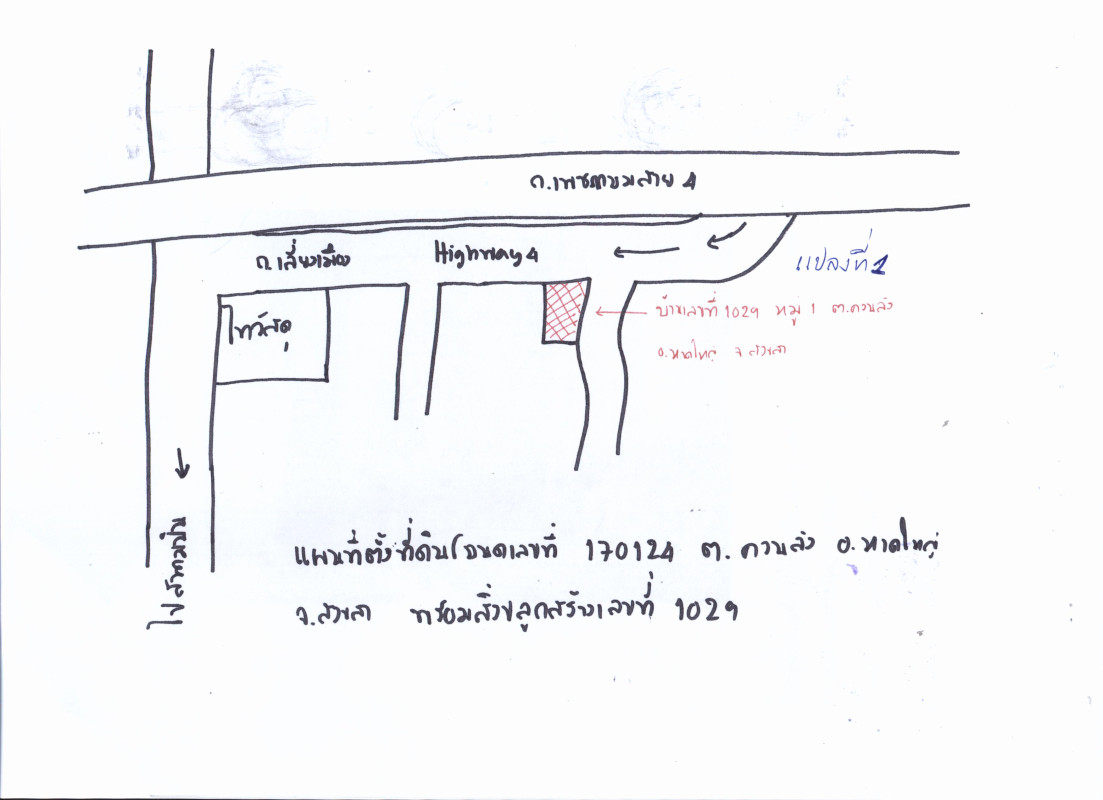 ถ.เพชรเกษมสาย 4
ถ.เลี่ยงเมือง Highway 4
แปลงที่ 1
ไทวัสดุ
บ้านเลขที่ 1029 หมู่ 1 ต.ควนลัง
อ.หาดใหญ่ จ.สงขลา
แผนที่ตั้งที่ดินโฉนดเลขที่ 170124 ต.ควนลัง อ.หาดใหญ่
จ.สงขลา พร้อมสิ่งปลูกสร้างเลขที่ 1029